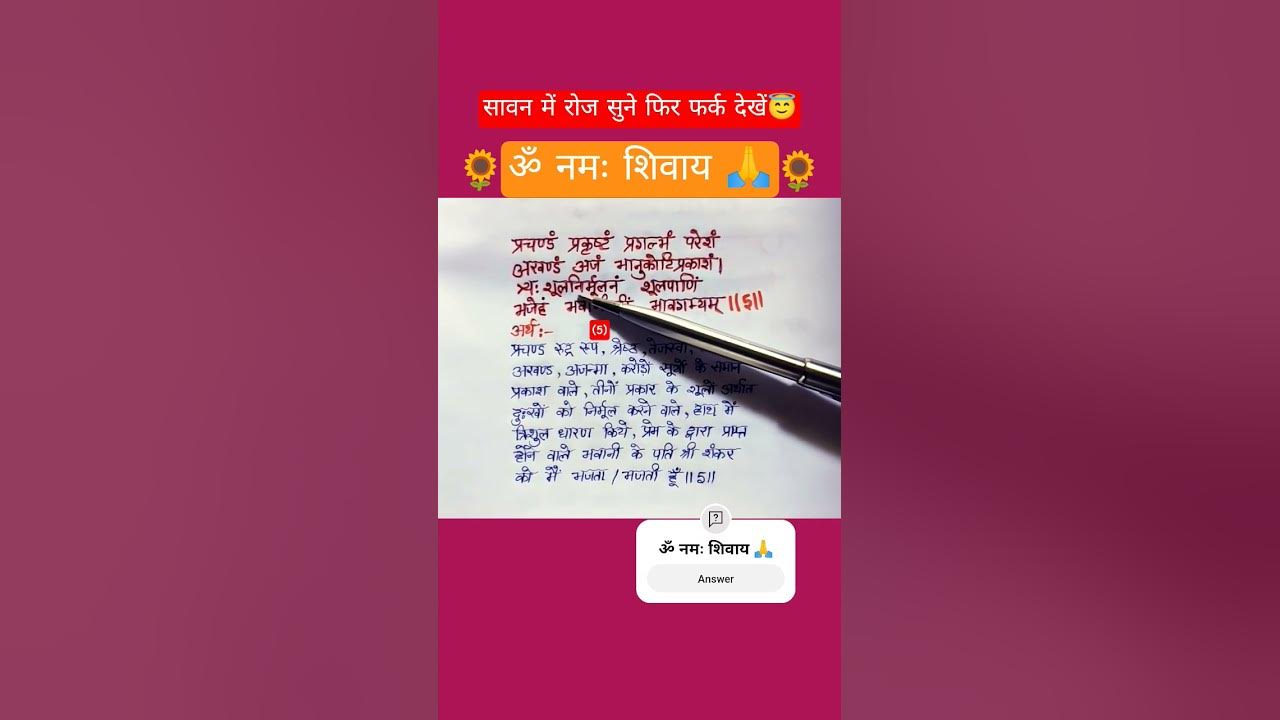 सावन में रोज सुने फिर फर्क देखें😇
🌻ॐ नमः शिवाय 🙏🌻
प्रचण्डं प्रकृष्टं प्रगल्भं परेशं
अखण्डं अजं भानुकोटिप्रकाशं।
त्र्यः शूलनिर्मूलनं शूलपाणिं
भजेहं भावगम्यम् ||5||
अर्थ :-
(5)
प्रचण्ड रुद्र रूप, श्रेष्ठ, तेजस्वी,
अखण्ड, अजन्मा, करोड़ों सूर्यो के समान
प्रकाश वाले, तीनों प्रकार के शूलों अर्थात
दुःखों को निर्मूल करने वाले, हाथ में
त्रिशुल धारण किये, प्रेम के द्वारा प्राप्त
होने वाले भवानी के पति श्री शंकर
को मैं भजता / भजती हूँ ||5||
ॐ नमः शिवाय 🙏
Answer